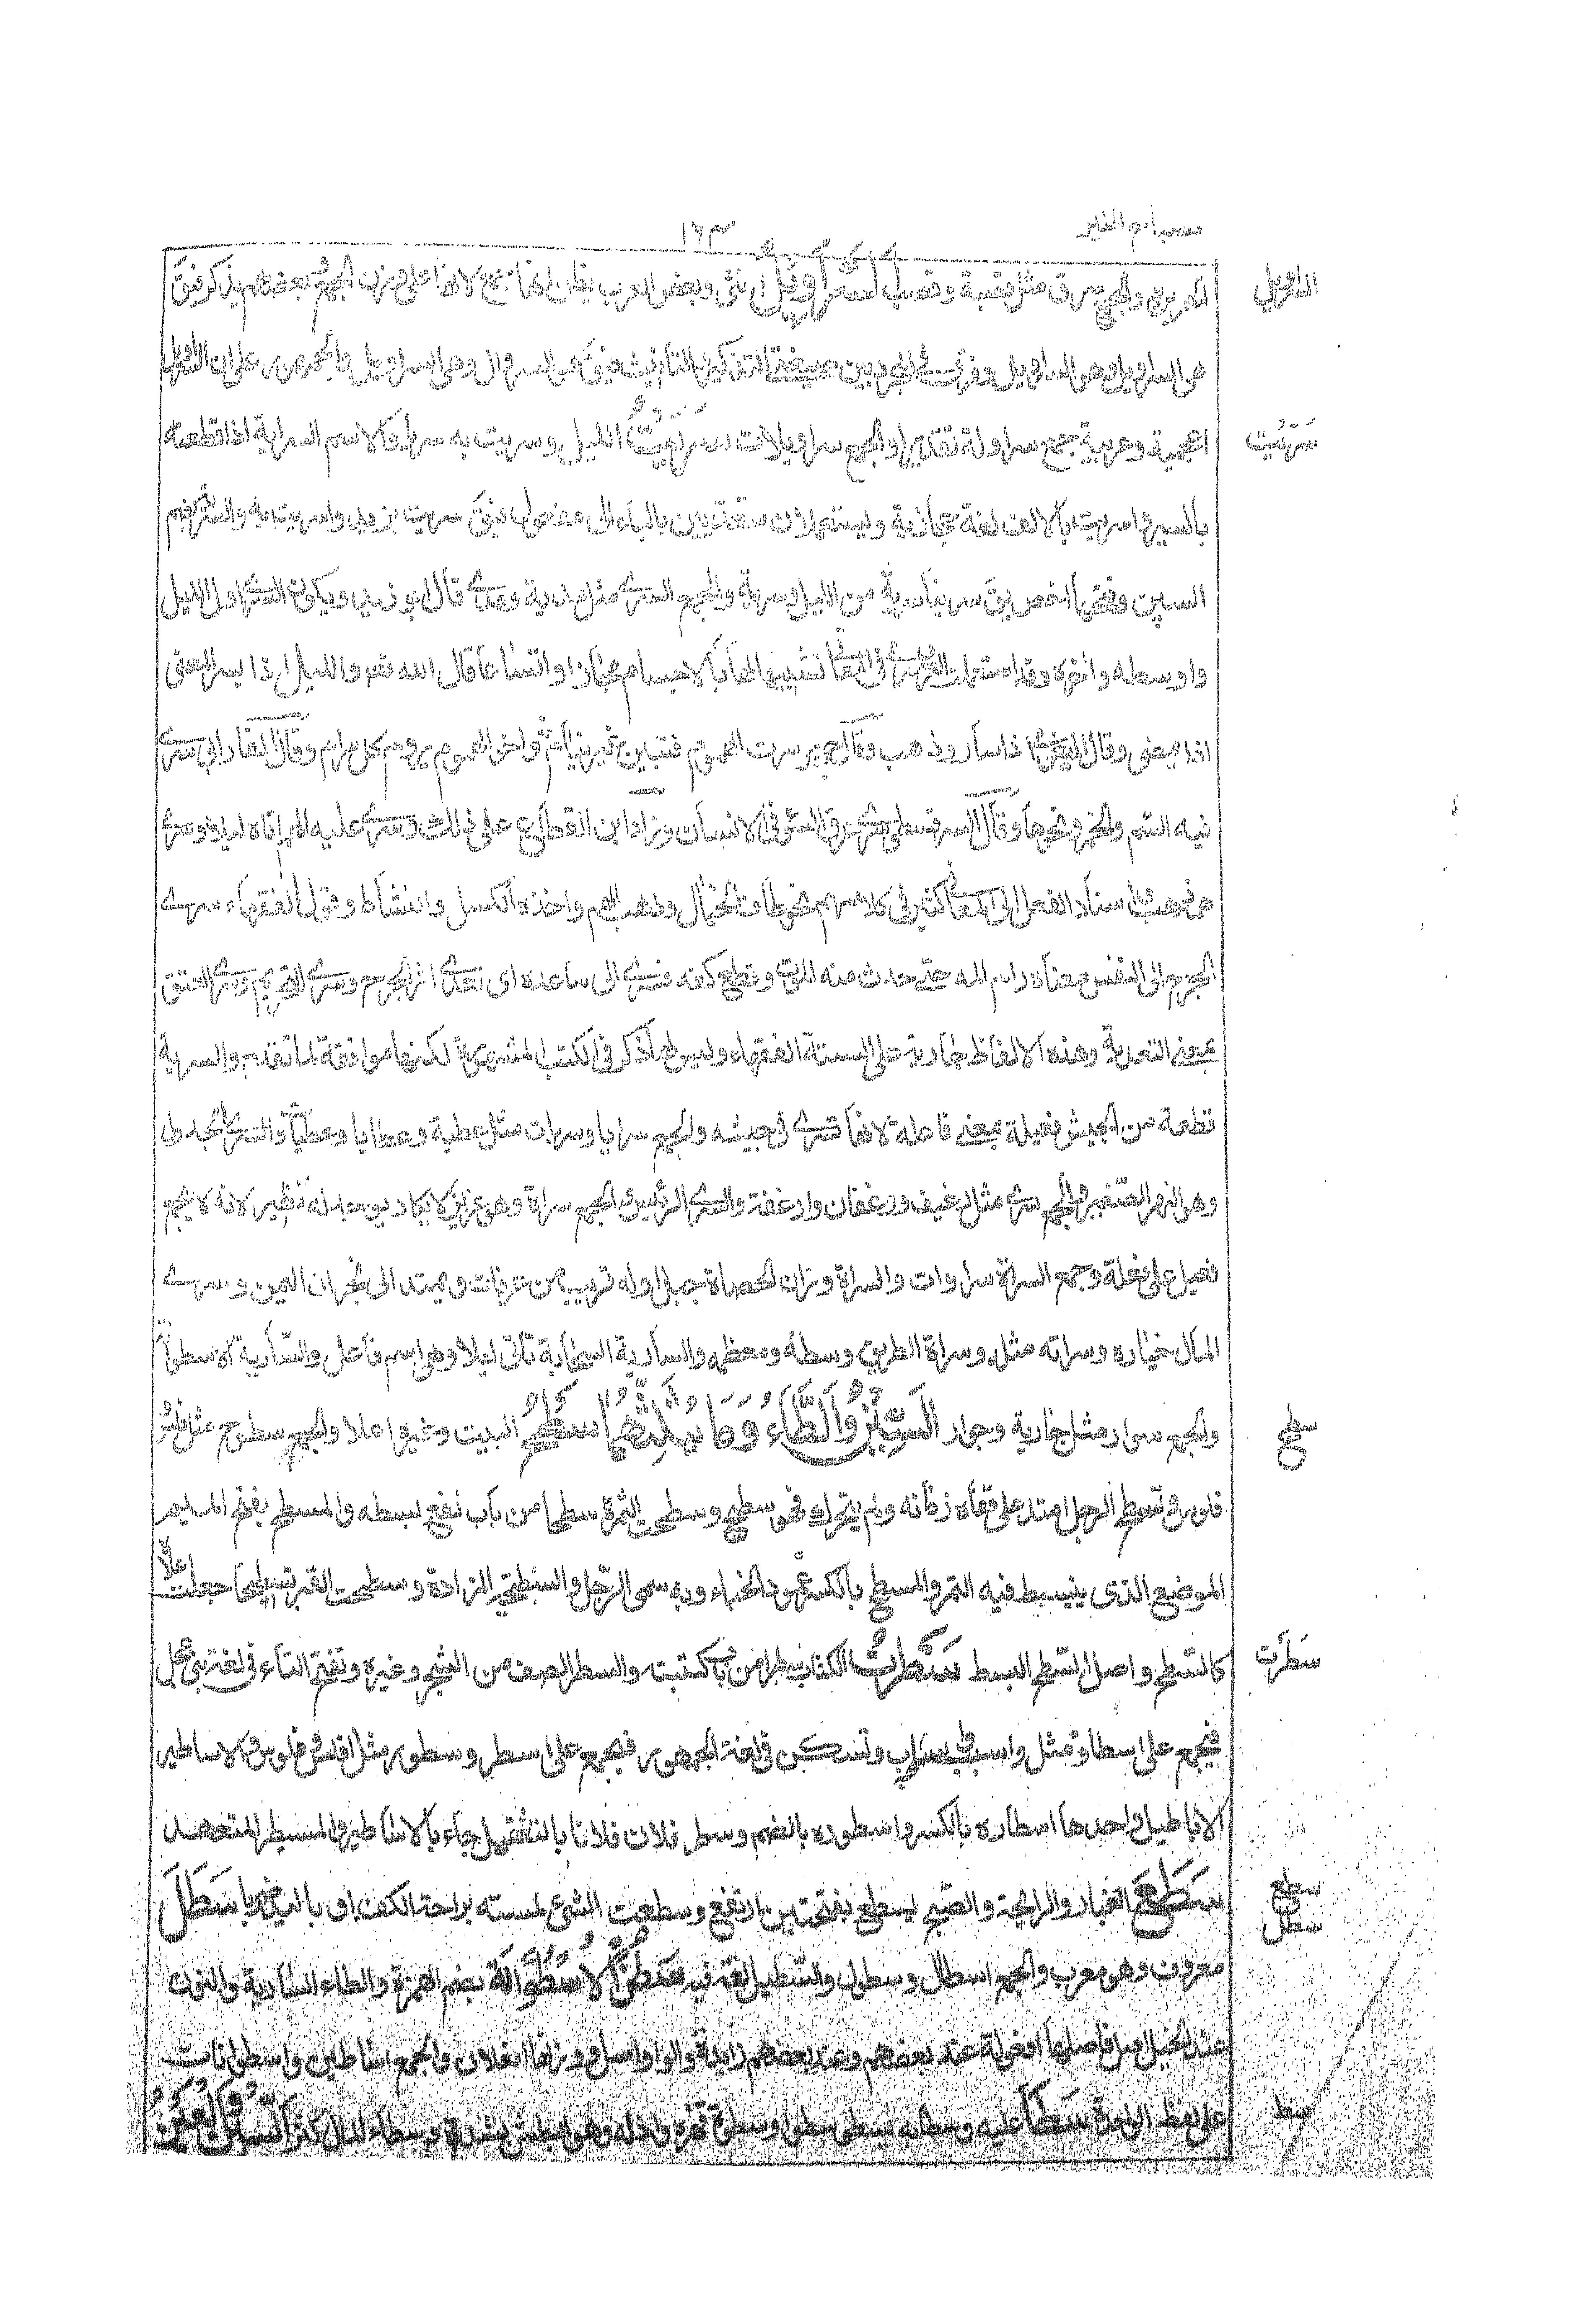 مصباح المنير
١٦٣
الحرير والجمع سرق مثل قصبة وقصب السراويل انثى وبعض العرب يظن انها جمع لانها على وزن الجمع وبعضهم يذكر فيق
هى السراويل وهو السراويل وفرق فى المجرد بين صيغتى التذكير والتانيث فيق هى السراويل وهو السروال والجمهور على ان السراويل
اعجمية وعربية جمع سروالة تقديرا والجمع سراويلات سريت الليل وسريت به سريا والاسم السراية اذا قطعته
بالسير واسريت بالالف لغة حجازية ويستعملان متعديين بالباء الى مفعول فيق سريت بزيد واسريت به والسرية بضم
السين وفتحها اخص يق سرينا سرية من الليل وسرية والجمع السرى مثل مدية ومدى قال ابو زيد ويكون السرى اول الليل
واوسطه واخره وقد استعملت العرب سرى فى المعانى تشبيها لها بالاجسام مجازا واتساعا قال الله تعم والليل اذا يسر المعنى
اذا يمضى وقال البغوى اذا سار وذهب وقال جرير سرت الهموم فبتن غير نيام واخو الهموم يروم كل مرام وقال الفارابى سرى
فيه السم والخمر ونحوهما وقال السرقسطى سرى عرق السوء فى الانسان وزاد ابن القطاع على ذلك وسرى عليه الهم اتاه ليلا وسرى
همه ذهب واسناد الفعل الى المعانى كثير فى كلامهم نحو طاف الخيال وذهب الهم واخذه الكسل والنشاط وقول الفقهاء سرى
الجرح الى النفس معناه دام المه حتى حدث منه الموت وقطع كفه فسرى الى ساعده اى تعدى اثر الجرح وسرى التحريم وسرى العتق
بمعنى التعدية وهذه الالفاظ جارية على السنة الفقهاء وليس لها ذكر فى الكتب المشهورة لكنها موافقة لما تقدم والسرية
قطعة من الجيش فعيلة بمعنى فاعلة لانها تسرى فى خفية والجمع سرايا وسريات مثل عطية وعطايا وعطيات والسرى الجدول
وهو النهر الصغير والجمع سريان مثل رغيف ورغفان وارغفة والسرى الرئيس والجمع سراة وهو عزيز لا يكاد يوجد له نظير لانه لا يجمع
فعيل على فعلة وجمع السراة سراوات والسراة وزان الحصاة جبل اوله قريب من عرفات ويمتد الى نجران اليمن وسرى
المال خياره وسراته مثله وسراة الطريق وسطه ومعظمه والسارية السحابة تاتى ليلا وهى اسم فاعل والسارية الاسطوانة
والجمع سوار مثل جارية وجوار السين والطاء وما يثلثهما سطح البيت وغيره اعلاه والجمع سطوح مثل فلس
فلوس وتسطح الرجل امتد على قفاه زمانة ولم يتحرك فهو سطيح وسطحت الثمرة سطحا من باب نفع بسطه والمسطح بفتح الميم
الموضع الذى ينبسط فيه التمر والمسطح بالكسر عمود الخباء وبه سمى الرجل والسطيحة المزادة وسطحت القبر تسطيحا جعلت اعلاه
كالسطح واصل السطح البسط سطرت الكتاب سطرا من باب كتبت والسطر الصف من الشجر وغيره وتفتح الطاء فى لغة بنى عجل
فيجمع على اسطار مثل سبب واسباب وتسكن فى لغة الجمهور فيجمع على اسطر وسطور مثل افلس فلوس والاساطير
الاباطيل واحدها اسطاره بالكسر واسطوره بالضم وسطر فلان فلانا بالتثقيل جاء بالاساطير والمسيطر المتعهد
سطع الغبار والرايحة والصبح يسطع بفتحتين ارتفع وسطعت الشئ لمسته براحة الكف او باليد ضربا سطل
معروف وهو معرب والجمع اسطال وسطول والسيطل لغة فيه سطن الاسطوانة بضم الهمزة والطاء السارية والنون
عند الخليل اصل فاصلها افعوالة عند بعضهم وعند بعضهم زايدة والواو اصل ووزنها افعلانة والجمع اساطين واسطوانات
على لفظ الواحدة سطا عليه وسطا به يسطو سطوا وسطوة قهره واذله وهو البطش بشدة وسطا الماء كثر السين والعين
السراويل
سريت
سطح
سطرت
سطع
سطل
سط